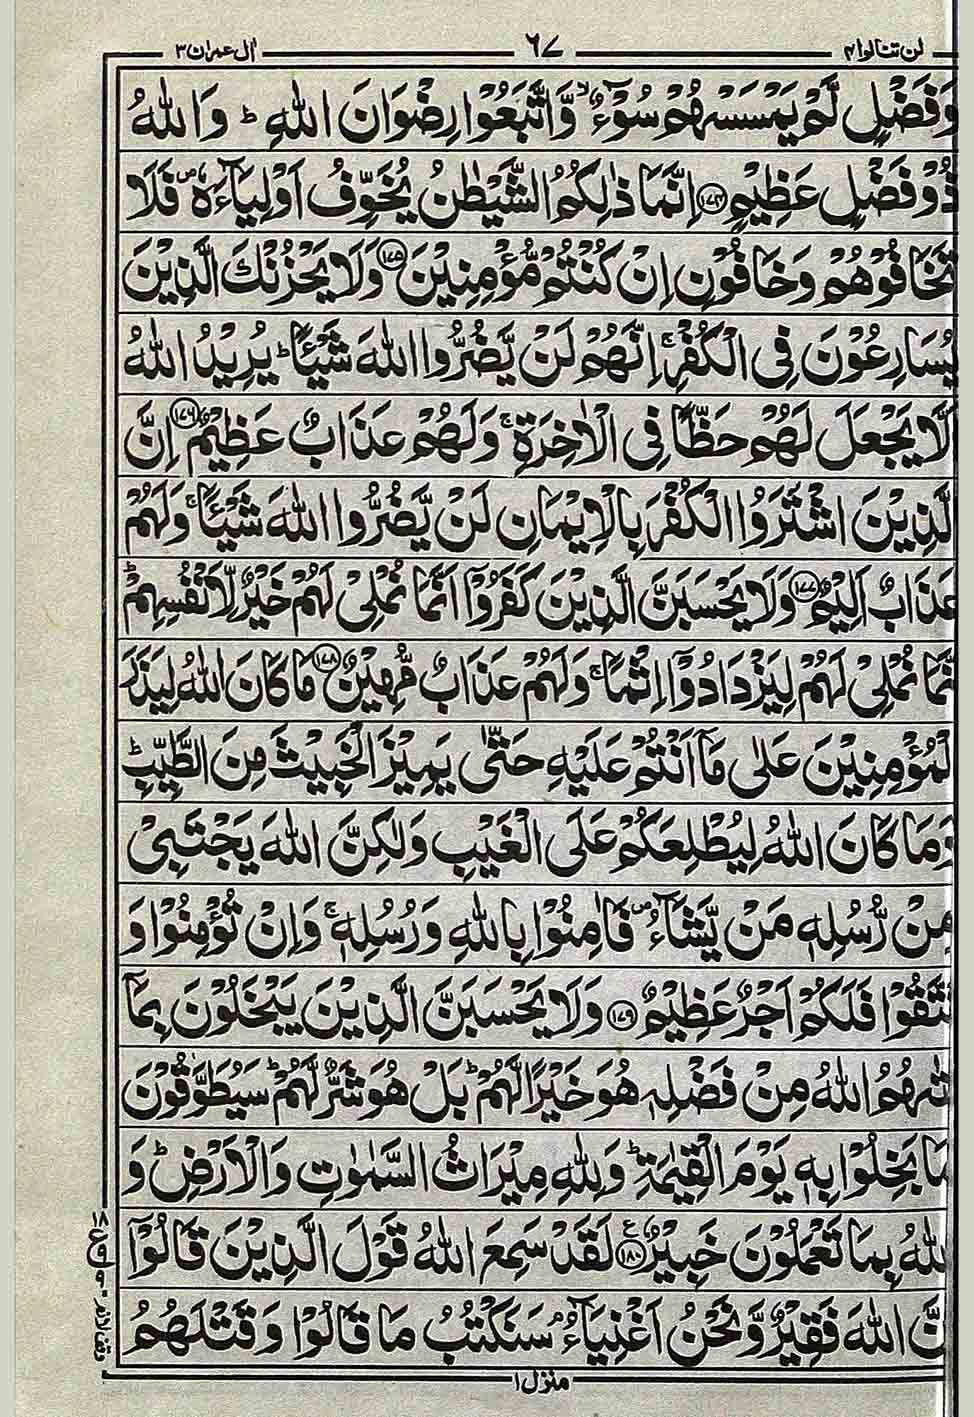 لن تنالوا ۴ ۶۷ اٰل عمران ۳
وَفَضْلٍ لَّمْ يَمْسَسْهُمْ سُوْٓءٌ ۙ وَّاتَّبَعُوْا رِضْوَانَ اللّٰهِ ؕ وَاللّٰهُ
ذُوْ فَضْلٍ عَظِيْمٍ ﴿۱۷۴﴾ اِنَّمَا ذٰلِكُمُ الشَّيْطٰنُ يُخَوِّفُ اَوْلِيَآءَهٗ ۪ فَلَا
تَخَافُوْهُمْ وَخَافُوْنِ اِنْ كُنْتُمْ مُّؤْمِنِيْنَ ﴿۱۷۵﴾ وَلَا يَحْزُنْكَ الَّذِيْنَ
يُسَارِعُوْنَ فِى الْكُفْرِ ۚ اِنَّهُمْ لَنْ يَّضُرُّوا اللّٰهَ شَيْـًٔا ؕ يُرِيْدُ اللّٰهُ
اَلَّا يَجْعَلَ لَهُمْ حَظًّا فِى الْاٰخِرَةِ ۚ وَلَهُمْ عَذَابٌ عَظِيْمٌ ﴿۱۷۶﴾ اِنَّ
الَّذِيْنَ اشْتَرَوُا الْكُفْرَ بِالْاِيْمَانِ لَنْ يَّضُرُّوا اللّٰهَ شَيْـًٔا ۚ وَلَهُمْ
عَذَابٌ اَلِيْمٌ ﴿۱۷۷﴾ وَلَا يَحْسَبَنَّ الَّذِيْنَ كَفَرُوْۤا اَنَّمَا نُمْلِىْ لَهُمْ خَيْرٌ لِّاَنْفُسِهِمْ ؕ
اِنَّمَا نُمْلِىْ لَهُمْ لِيَزْدَادُوْۤا اِثْمًا ۚ وَلَهُمْ عَذَابٌ مُّهِيْنٌ ﴿۱۷۸﴾ مَا كَانَ اللّٰهُ لِيَذَرَ
الْمُؤْمِنِيْنَ عَلٰى مَاۤ اَنْتُمْ عَلَيْهِ حَتّٰى يَمِيْزَ الْخَبِيْثَ مِنَ الطَّيِّبِ ؕ
وَمَا كَانَ اللّٰهُ لِيُطْلِعَكُمْ عَلَى الْغَيْبِ وَلٰكِنَّ اللّٰهَ يَجْتَبِىْ
مِنْ رُّسُلِهٖ مَنْ يَّشَآءُ ۪ فَاٰمِنُوْا بِاللّٰهِ وَرُسُلِهٖ ۚ وَاِنْ تُؤْمِنُوْا وَ
تَتَّقُوْا فَلَكُمْ اَجْرٌ عَظِيْمٌ ﴿۱۷۹﴾ وَلَا يَحْسَبَنَّ الَّذِيْنَ يَبْخَلُوْنَ بِمَاۤ
اٰتٰىهُمُ اللّٰهُ مِنْ فَضْلِهٖ هُوَ خَيْرًا لَّهُمْ ؕ بَلْ هُوَ شَرٌّ لَّهُمْ ؕ سَيُطَوَّقُوْنَ
مَا بَخِلُوْا بِهٖ يَوْمَ الْقِيٰمَةِ ؕ وَلِلّٰهِ مِيْرَاثُ السَّمٰوٰتِ وَالْاَرْضِ ؕ وَ
اللّٰهُ بِمَا تَعْمَلُوْنَ خَبِيْرٌ ﴿۱۸۰﴾ ع لَقَدْ سَمِعَ اللّٰهُ قَوْلَ الَّذِيْنَ قَالُوْۤا
اِنَّ اللّٰهَ فَقِيْرٌ وَّنَحْنُ اَغْنِيَآءُ ۘ سَنَكْتُبُ مَا قَالُوْا وَقَتْلَهُمُ
منزل ۱